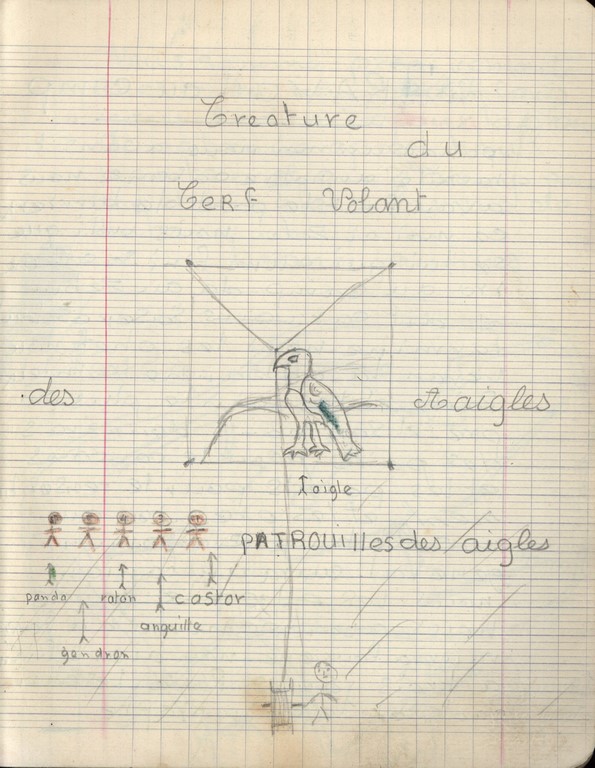 Creature
du
CeRF Volant
des Aaigles
aigle
PATROUilles des aigles
panda raton castor
anguille
gendron